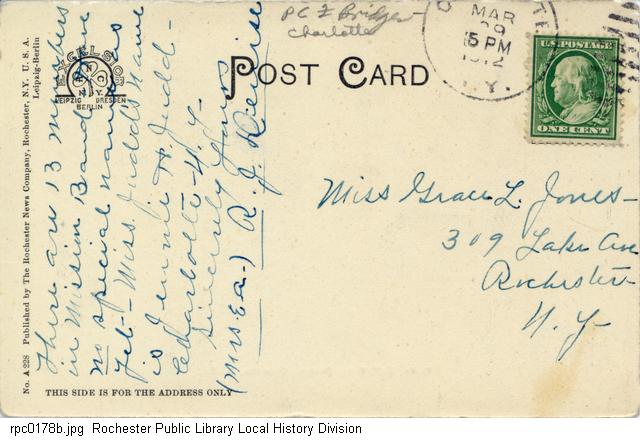 PC Z Bridges
Charlotte
MAR
29
5 PM
1912
N.Y.
U.S. POSTAGE
ONE CENT
POST CARD
EXCELSIOR
R N C
N.Y.
LEIPZIG DRESDEN
BERLIN
No. A 228 Published by The Rochester News Company, Rochester, N.Y., U.S.A.
Leipzig-Berlin
There are 13 members
in Mission Band
no special name as
yet - Miss Judd's name
is Jennie H. Judd -
Charlotte - N.Y.
Sincerely Yours
(Mrs. E.A.) R. J.
Miss Grace L. Jones -
309 Lake Ave
Rochester
N.Y-
THIS SIDE IS FOR THE ADDRESS ONLY
rpc0178b.jpg Rochester Public Library Local History Division